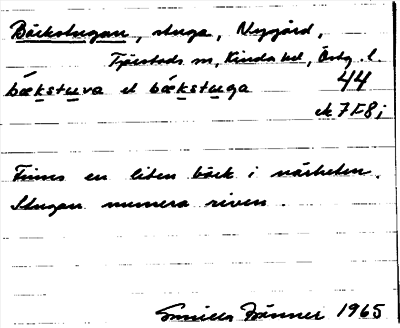 Bäckstugan, stuga, Nygård,
Tjärstads sn, Kinda hd, Östg. l.
bǽkstuva el bǽkstuga 44
ek 7F8i
Finns en liten bäck i närheten.
Stugan numera riven.
Gunilla Fränner 1965